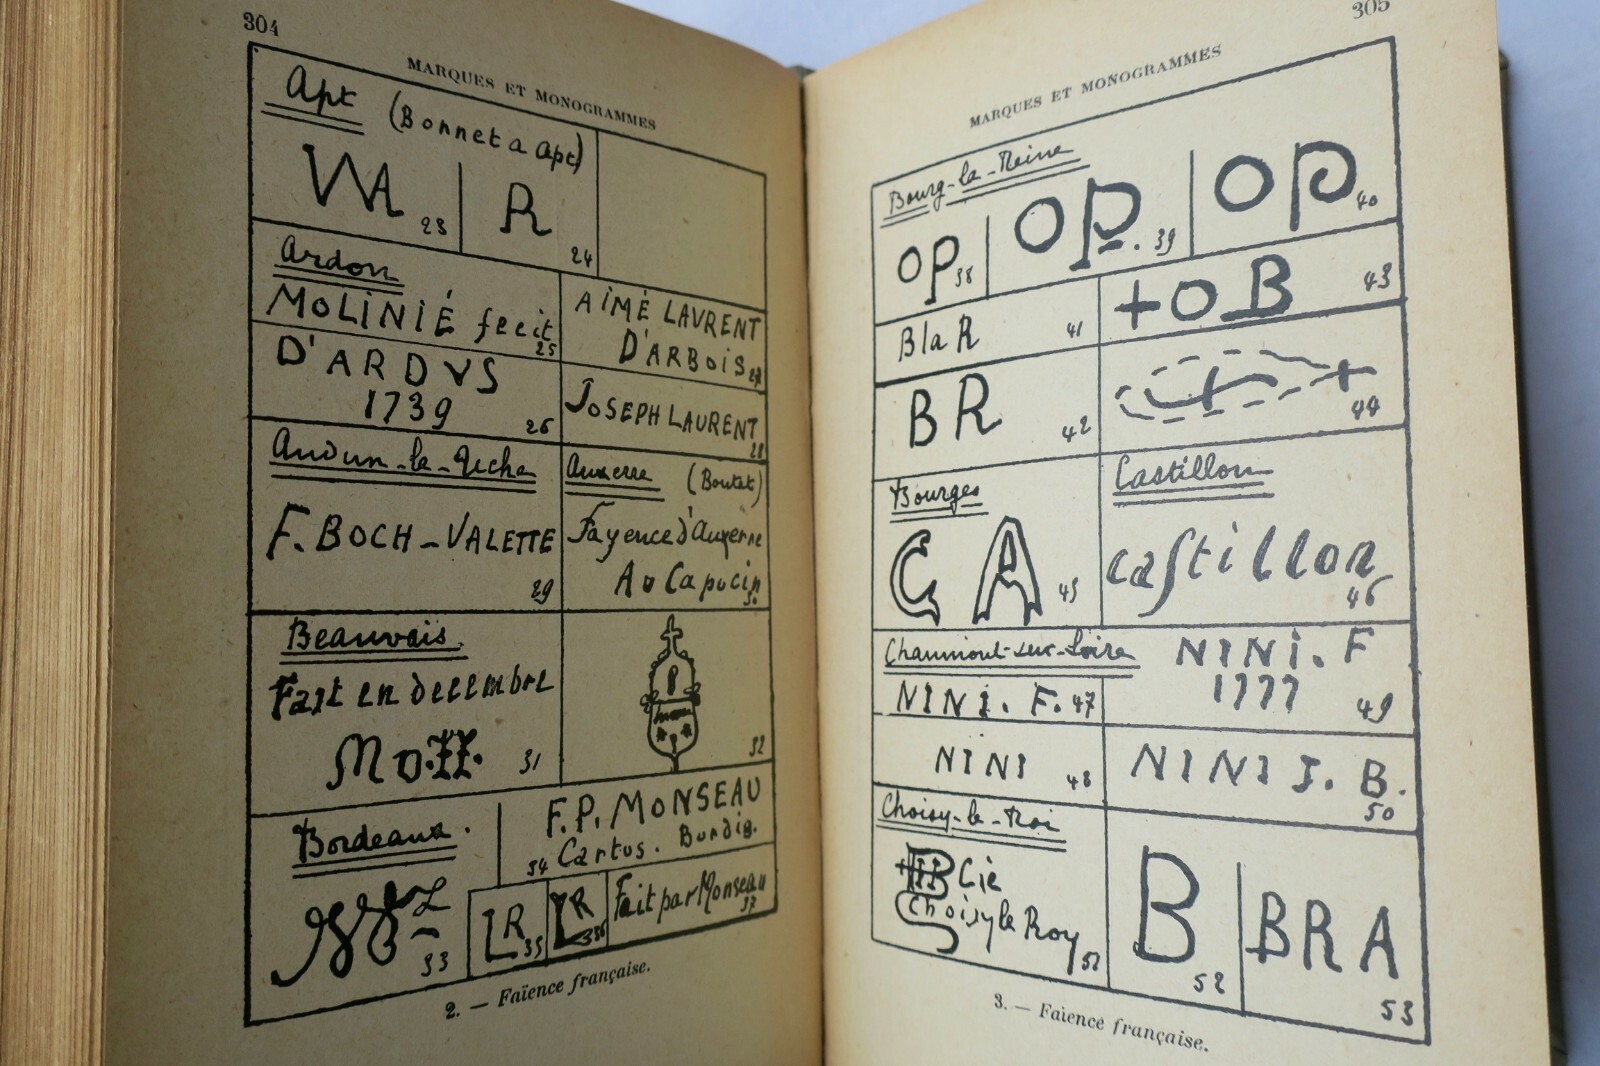 304
MARQUES ET MONOGRAMMES
Apt (Bonnet a Apt)
23
R
24
Ardon
MOLINIÉ fecit
25
AIMÉ LAVRENT
D'ARBOIS
27
D'ARDVS
1739
26
JOSEPH LAURENT
28
Audun-le-Tiche
F. BOCH-VALETTE
29
Auxerre (Boutet)
Fayence d'Auxerre
Au Capucin
30
Beauvais.
Fait en decembre
31
32
Bordeaux.
33
F.P. MONSEAU
34 Cartus. Burdig.
LR 35
LR 36
Fait par Monseau
37
2. — Faïence française.
305
MARQUES ET MONOGRAMMES
Bourg-la-Reine
OP 38
OP. 39
OP 40
BlaR 41
+OB 43
BR 42
44
Bourges
CA 45
Castillon
Castillon
46
Chaumont-sur-Loire
NINI. F. 47
NINI. F
1777
49
NINI 48
NINI I. B.
50
Choisy-le-Roi
HB Cie
Choisy le Roy
51
B
52
BRA
53
3. — Faïence française.